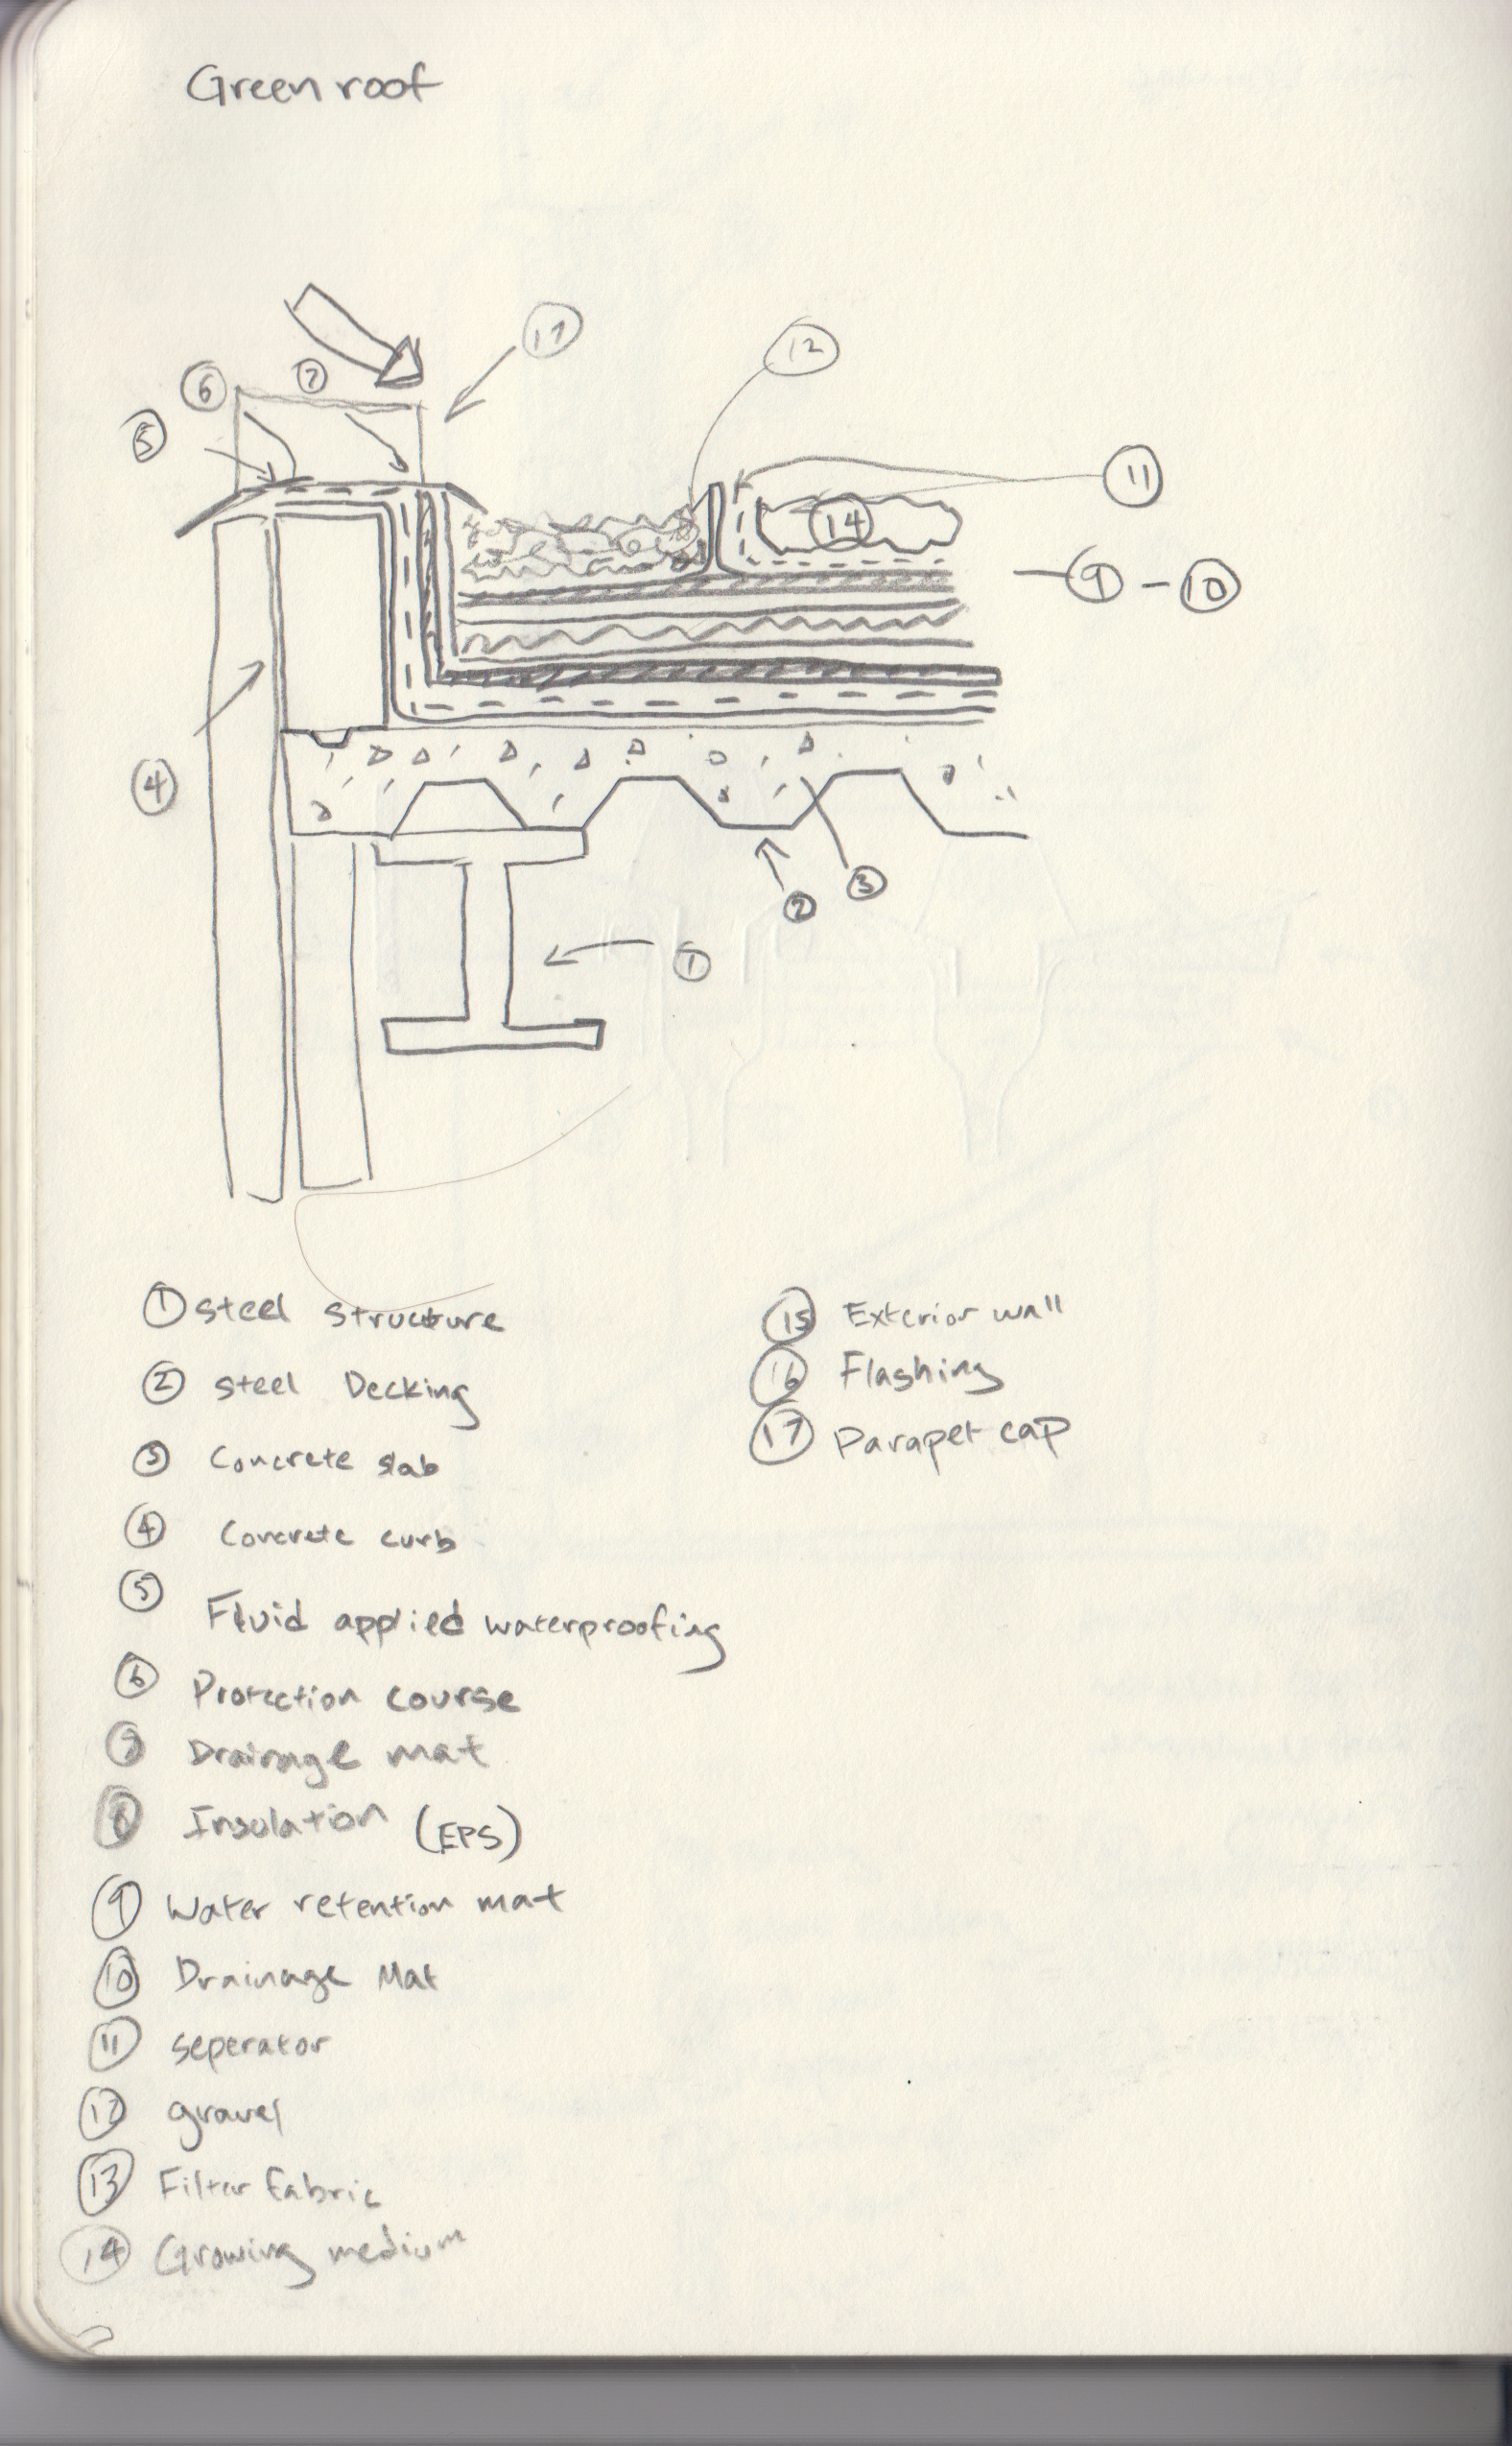 Green roof
17
12
6
7
5
11
14
9 - 10
4
3
2
1
1 Steel Structure
2 Steel Decking
3 Concrete slab
4 Concrete curb
5 Fluid applied waterproofing
6 Protection course
7 Drainage mat
8 Insulation (EPS)
9 Water retention mat
10 Drainage Mat
11 seperator
12 gravel
13 Filter fabric
14 Growing medium
15 Exterior wall
16 Flashing
17 Parapet cap